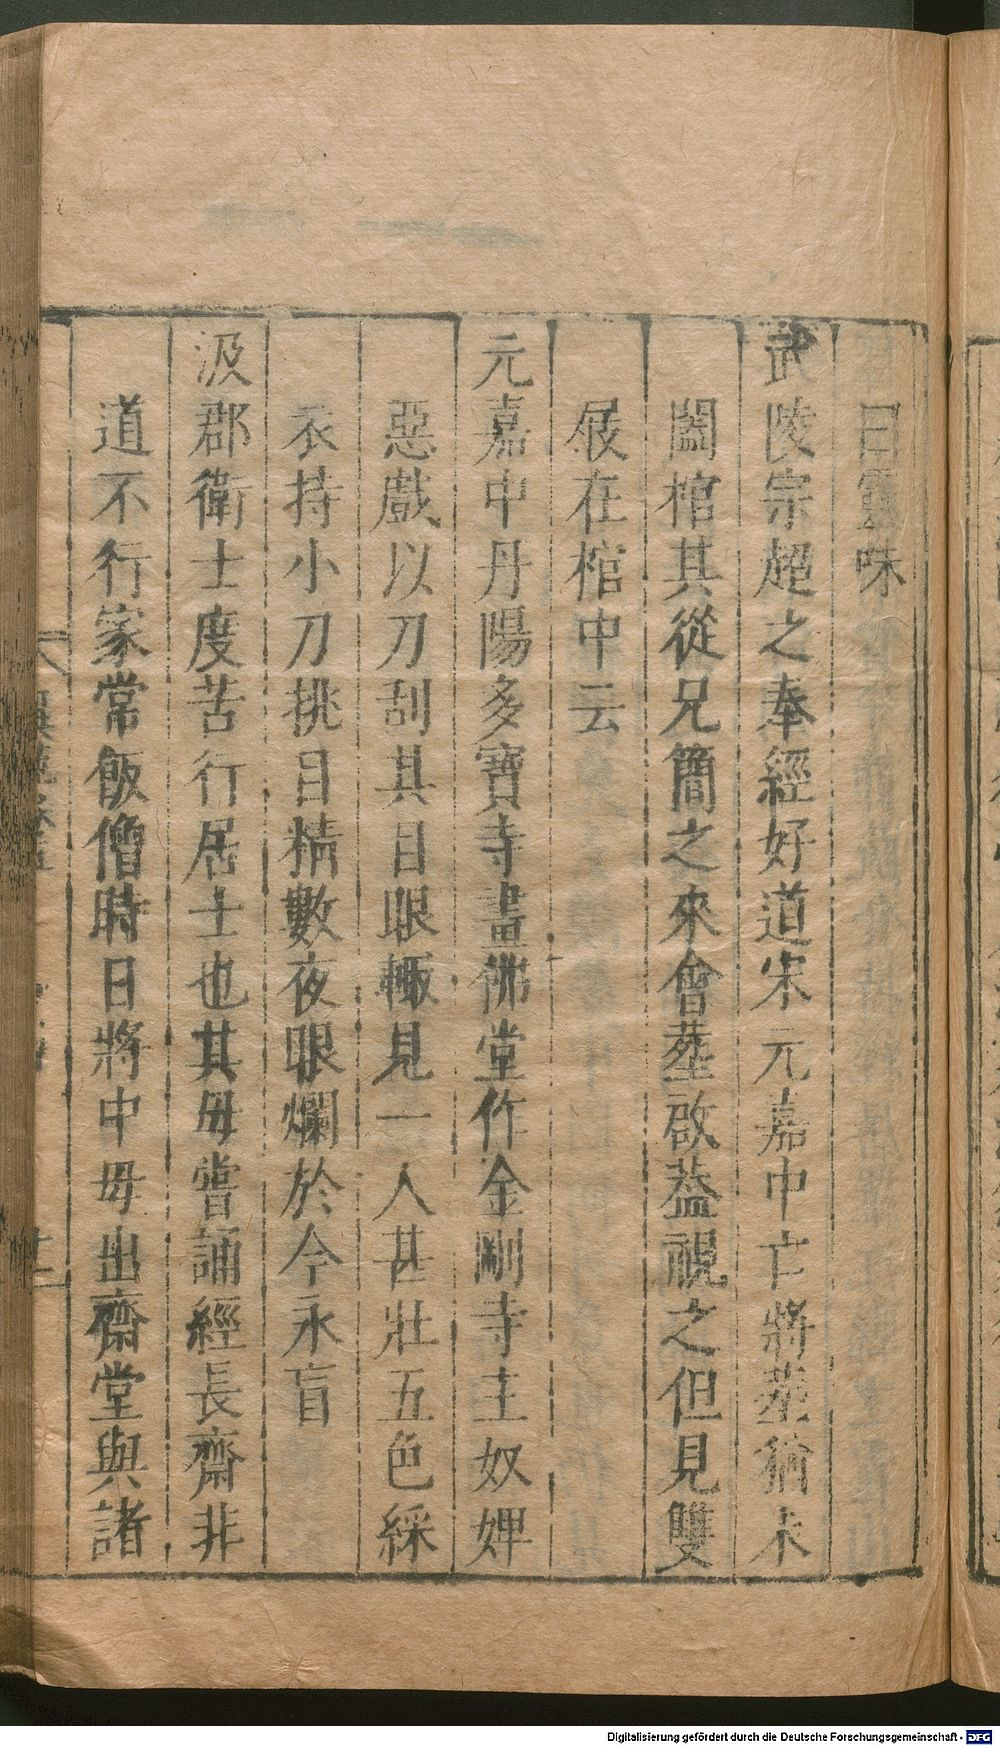 曰靈味
武陵宗超之奉經好道宋元嘉中亡將塟猶未
闔棺其從兄簡之來會塟啟葢視之但見雙
屐在棺中云
元嘉中丹陽多寶寺畫佛堂作金剛寺主奴婢
惡戲以刀刮其目眼輙見一人甚壯五色綵
衣持小刀挑目精數夜眼爛於今永盲
汲郡衛士度苦行居士也其母嘗誦經長齋非
道不行家常飯僧時日將中母出齋堂與諸
Digitalisierung gefördert durch die Deutsche Forschungsgemeinschaft - DFG